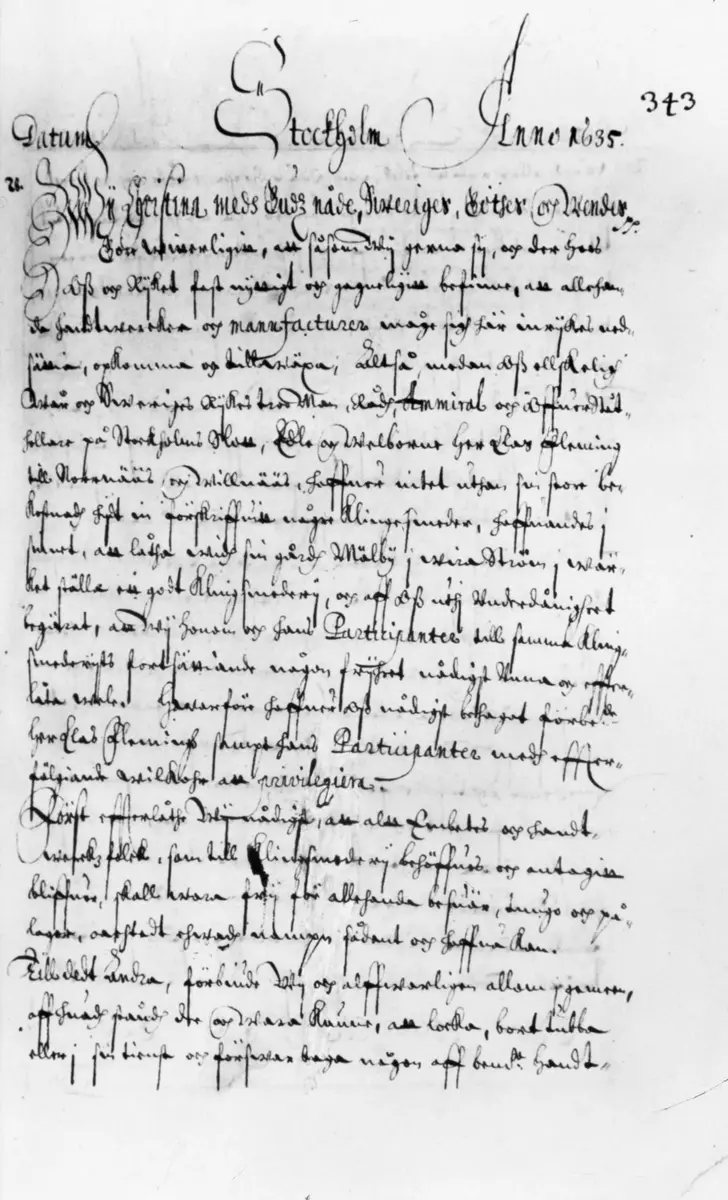 343
Datum Stockholm Anno 1635.
21.
Wÿ Christina medh Gudz nåde, Sweriges, Göthes och Wendes etc.
Göre witterligit, att såsom Wij gerna sij, och der hoos
Oß och Rijket fast nyttigt och gagneligit befinne, att allehan-
da handtwercker och manufacturer måge sigh här in rijkes ned-
sättia, opkomma og tillwäxa; Altså, medan Oß ellskelig
Wår och Sweriges Rijkes troo Man, Rådh, Ammiral och Öffuerståt-
hollare på Stockholms Slott, Edle og Welborne Her Clas Fleming
till Norrnääs och Willnääs, haffuer intet uthan sin store be-
kostnadh hijt in förskriffuit någre Klingesmeder, haffuandes j
sinnet, att låtha widh sin gårdh Mälby j Wira Ström j wär-
ket ställa ett godt Klingsmederij, och aff Oß uthj Underdånigheet
begärat, att Wij honom och hans Participanter till samma Kling-
smederijs fortsättiande någon frijheet nådigst Unna og effter-
låta wele. Hwarföre haffuer Oß nådigst behagat förbe:de
Her Clas Fleming sampt hans Participanter medh effter-
fölgiande wilkohr att privilegiera.
Först effterlåthe Wij nådigst, att alt Embetes och handt-
wercks folck, som till Klingsmederij behöffues och antagit
bliffuer, skall wara frij för allehanda besuär, tunga och på-
lagor, oachtadt ehwadh nampn sådant och haffua kan.
Till dedt Andra, förbiude Wij och alffwarligen allom j gemeen,
aff hwadhståndh dee och wara kunne, att locka, bort tubba
eller j sin tienst och förswar taga någon aff bem:te Handt-